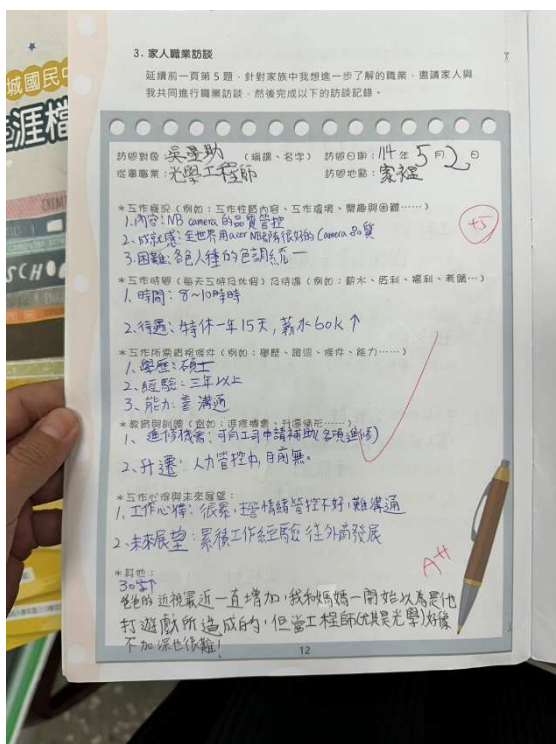 城國民中
涯檔
SCHO
3. 家人職業訪談
延續前一頁第 5 題，針對家族中我想進一步了解的職業，邀請家人與
我共同進行職業訪談，然後完成以下的訪談記錄。
訪談對象：吳墨助 （稱謂、名字） 訪談日期：114 年 5 月 2 日
從事職業：光學工程師 訪談地點：家裡
*工作概況（例如：工作性質內容、工作環境、樂趣與困難……）
+5
1.內容：NB camera 的品質管控
2.成就感：全世界用acer NB都有很好的Camera品質
3.困難：各色人種的色調統一
*工作時間（每天工時及休假）及待遇（例如：薪水、店利、福利、考績…）
1.時間：8~10時時
2.待遇：特休一年15天，薪水60k↑
*工作所需資格條件（例如：學歷、證照、條件、能力……）
1、學歷：碩士
2、經驗：三年以上
3、能力：善溝通
*教育與訓練（例如：進修機會、升遷情形……）
1、進修機會：可向公司申請補助(各項進修)
2、升遷：人力管控中，目前無。
*工作心得與未來展望：
1.工作心得：很累，主管情緒管控不好，難溝通
2、未來展望：累積工作經驗往外商發展
A++
*其他：
30字↑
爸爸的近視最近一直增加，我和媽媽一開始以為是他
打遊戲所造成的，但當工程師(尤其是光學)好像
不加深也很難！
12